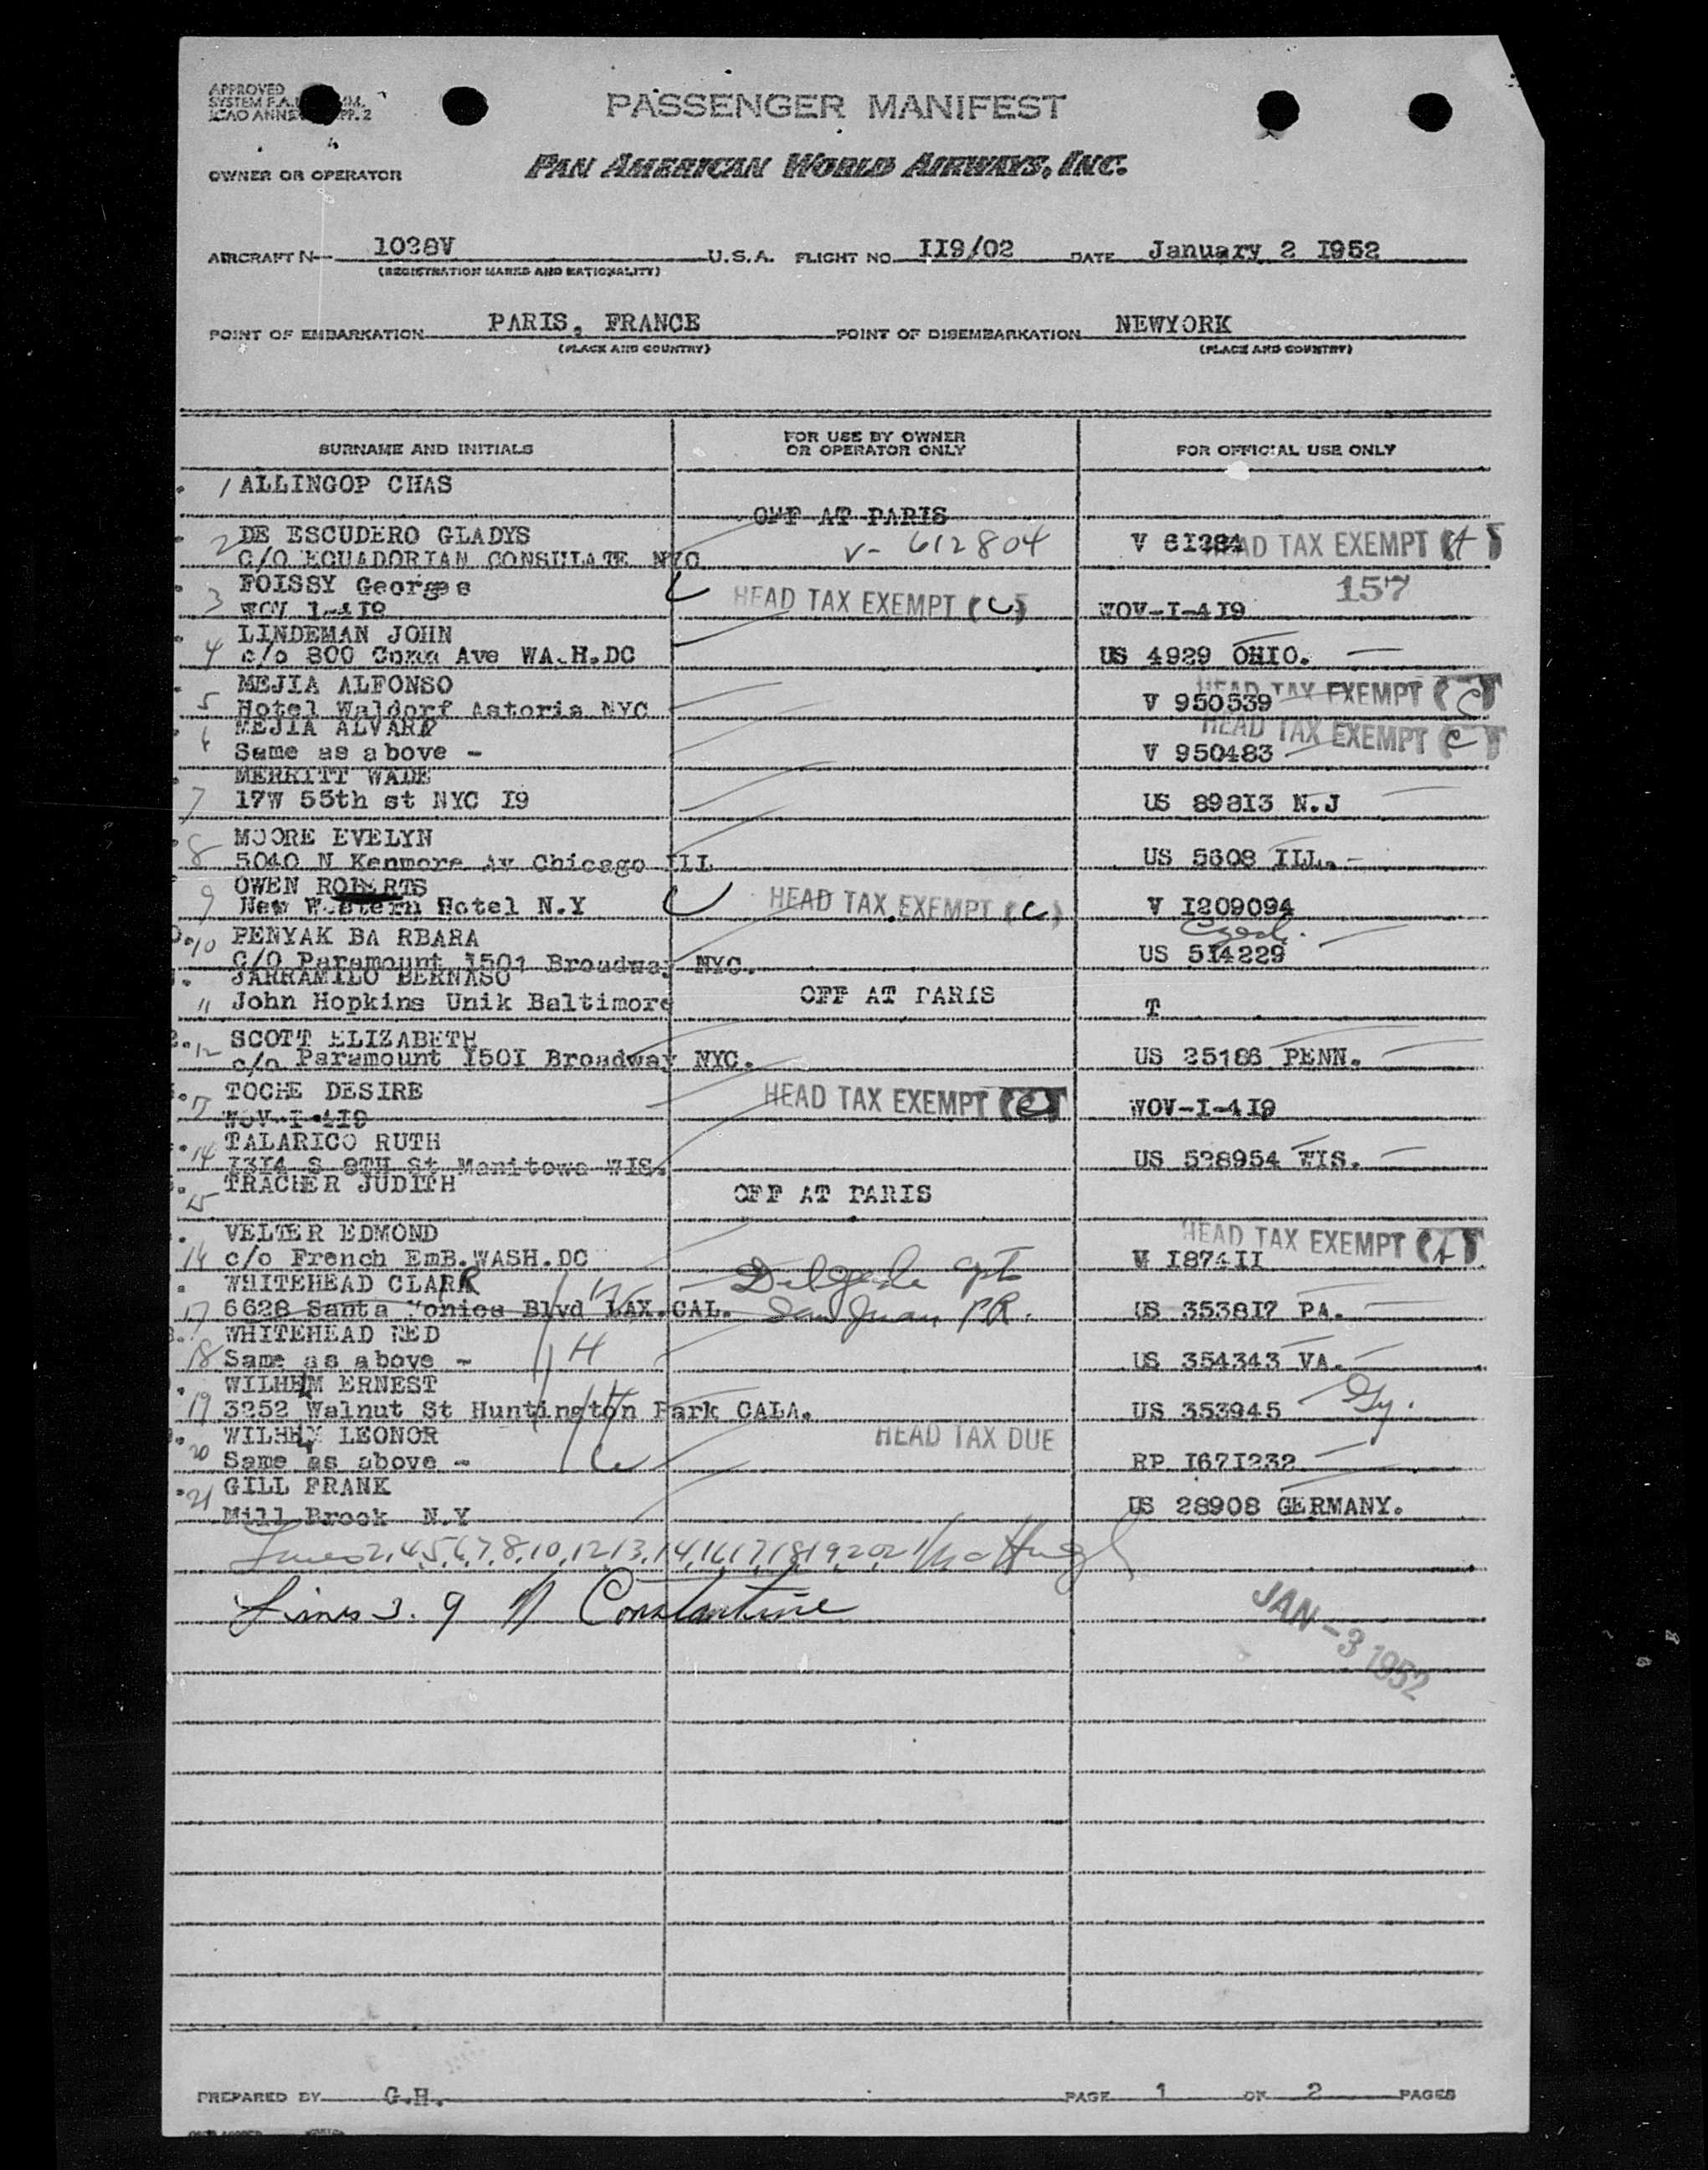 APPROVED
SYSTEM F.A.
ICAO ANNE PP. 2
PASSENGER MANIFEST
OWNER OR OPERATOR PAN AMERICAN WORLD AIRWAYS, INC.
AIRCRAFT N— 1038V U.S.A. FLIGHT NO. II9/02 DATE January 2 I952
(REGISTRATION MARKS AND NATIONALITY)
POINT OF EMBARKATION PARIS, FRANCE POINT OF DISEMBARKATION NEWYORK
(PLACE AND COUNTRY) (PLACE AND COUNTRY)
SURNAME AND INITIALS FOR USE BY OWNER OR OPERATOR ONLY FOR OFFICIAL USE ONLY
1 ALLINGOP CHAS
OFF AT PARIS
2 DE ESCUDERO GLADYS V- 612804 V 6I284 HEAD TAX EXEMPT
C/O ECUADORIAN CONSULATE NYC
3 FOISSY Georges HEAD TAX EXEMPT (C) 157
WOV 1-4I9 WOV-I-4I9
4 LINDEMAN JOHN
c/o 800 Coma Ave WA.H.DC US 4929 OHIO.
5 MEJIA ALFONSO HEAD TAX EXEMPT (C)
Hotel Waldorf Astoria NYC V 950539
6 MEJIA ALVARO HEAD TAX EXEMPT C
Same as above - V 950483
MERRITT WADE
7 17W 55th st NYC I9 US 898I3 N.J
8 MOORE EVELYN
5040 N Kenmore Av Chicago ILL US 5608 ILL.-
9 OWEN ROBERTS HEAD TAX EXEMPT (C)
New Western Hotel N.Y V I209094
10 PENYAK BA RBARA Czech.
C/O Paramount 1501 Broadway NYC. US 5I4229
JARRAMILO BERNASO
11 John Hopkins Unik Baltimore OFF AT PARIS T
12 SCOTT ELIZABETH
c/o Paramount I50I Broadway NYC. US 25186 PENN.
13 TOCHE DESIRE HEAD TAX EXEMPT (C)
WOV-I-4I9 WOV-I-4I9
14 TALARICO RUTH
I3I4 S 8TH St Manitowa WIS. US 528954 WIS.
15 TRACHER JUDITH OFF AT PARIS
VELTER EDMOND HEAD TAX EXEMPT
16 c/o French EmB.WASH.DC V I874II
WHITEHEAD CLARK
17 6628 Santa Monica Blvd LAX.CAL. San Juan, P.R. US 353817 PA.
WHITEHEAD RED
18 Same as above - H US 354343 VA.
WILHEM ERNEST
19 3252 Walnut St Huntington Park CALA. US 353945 Gy.
WILHEM LEONOR HEAD TAX DUE
20 Same as above - RP I67I232
21 GILL FRANK
Mill Brook N.Y US 28908 GERMANY.
Lines 2,4,5,6,7,8,10,12,13,14,16,17,18,19,20,21
Lines 3. 9 Constantine
JAN -3 1952
PREPARED BY G.H. PAGE 1 OF 2 PAGES